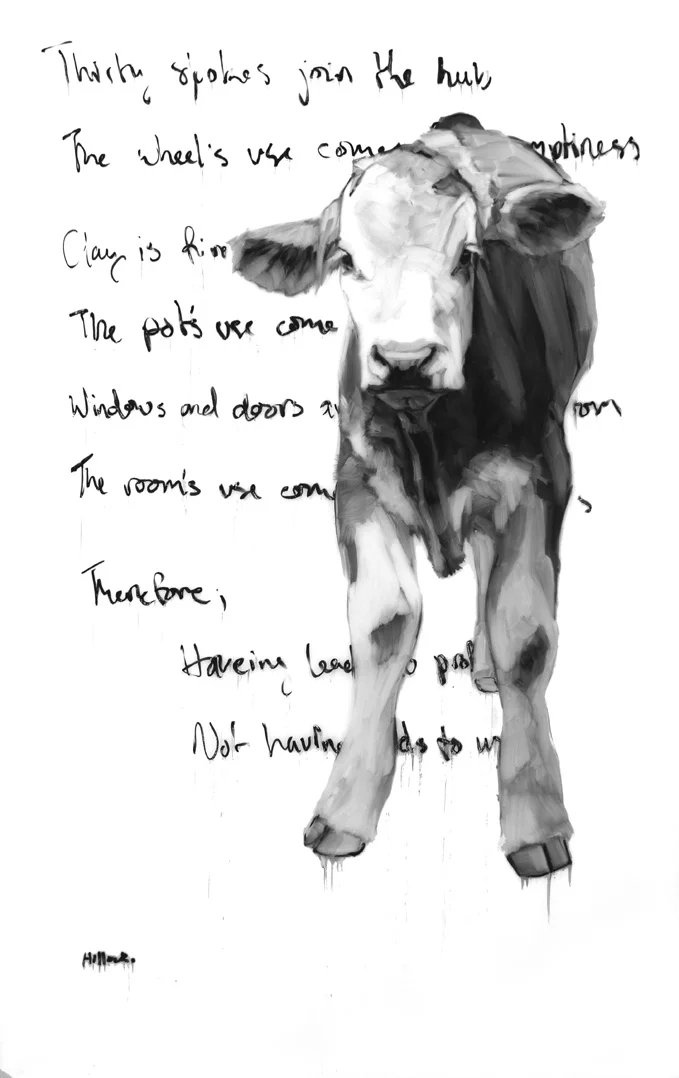 Thirty spokes join the hub
The wheel's use comes mptiness
Clay is fire
The pot's use come
Windows and doors oom
The room's use com s
Therefore;
Haveing lead o prof
Not having ds to w
Hillock.